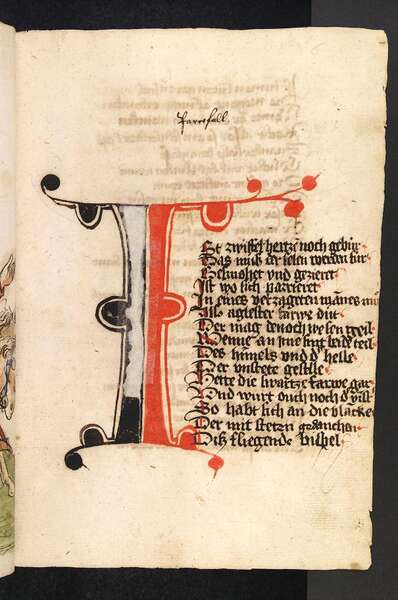 Parcifall
I
St zwiffel hertze noch gebur
Das muß der selen werden sur
Gesmohet vnd gezieret
Ist wo sich parrieret
In eines verzageten mannes mů
Als aglester farwe dut
Der mag denoch wesen geil
Wenne an ime sint beide teil
Des himels vnd d' helle
Der vnstete geselle
Hette die swartze farwe gar
Vnd wurt ouch noch d' vīst
So habt sich an die blancke
Der mit steten gedancken
Dis fliegende bispel